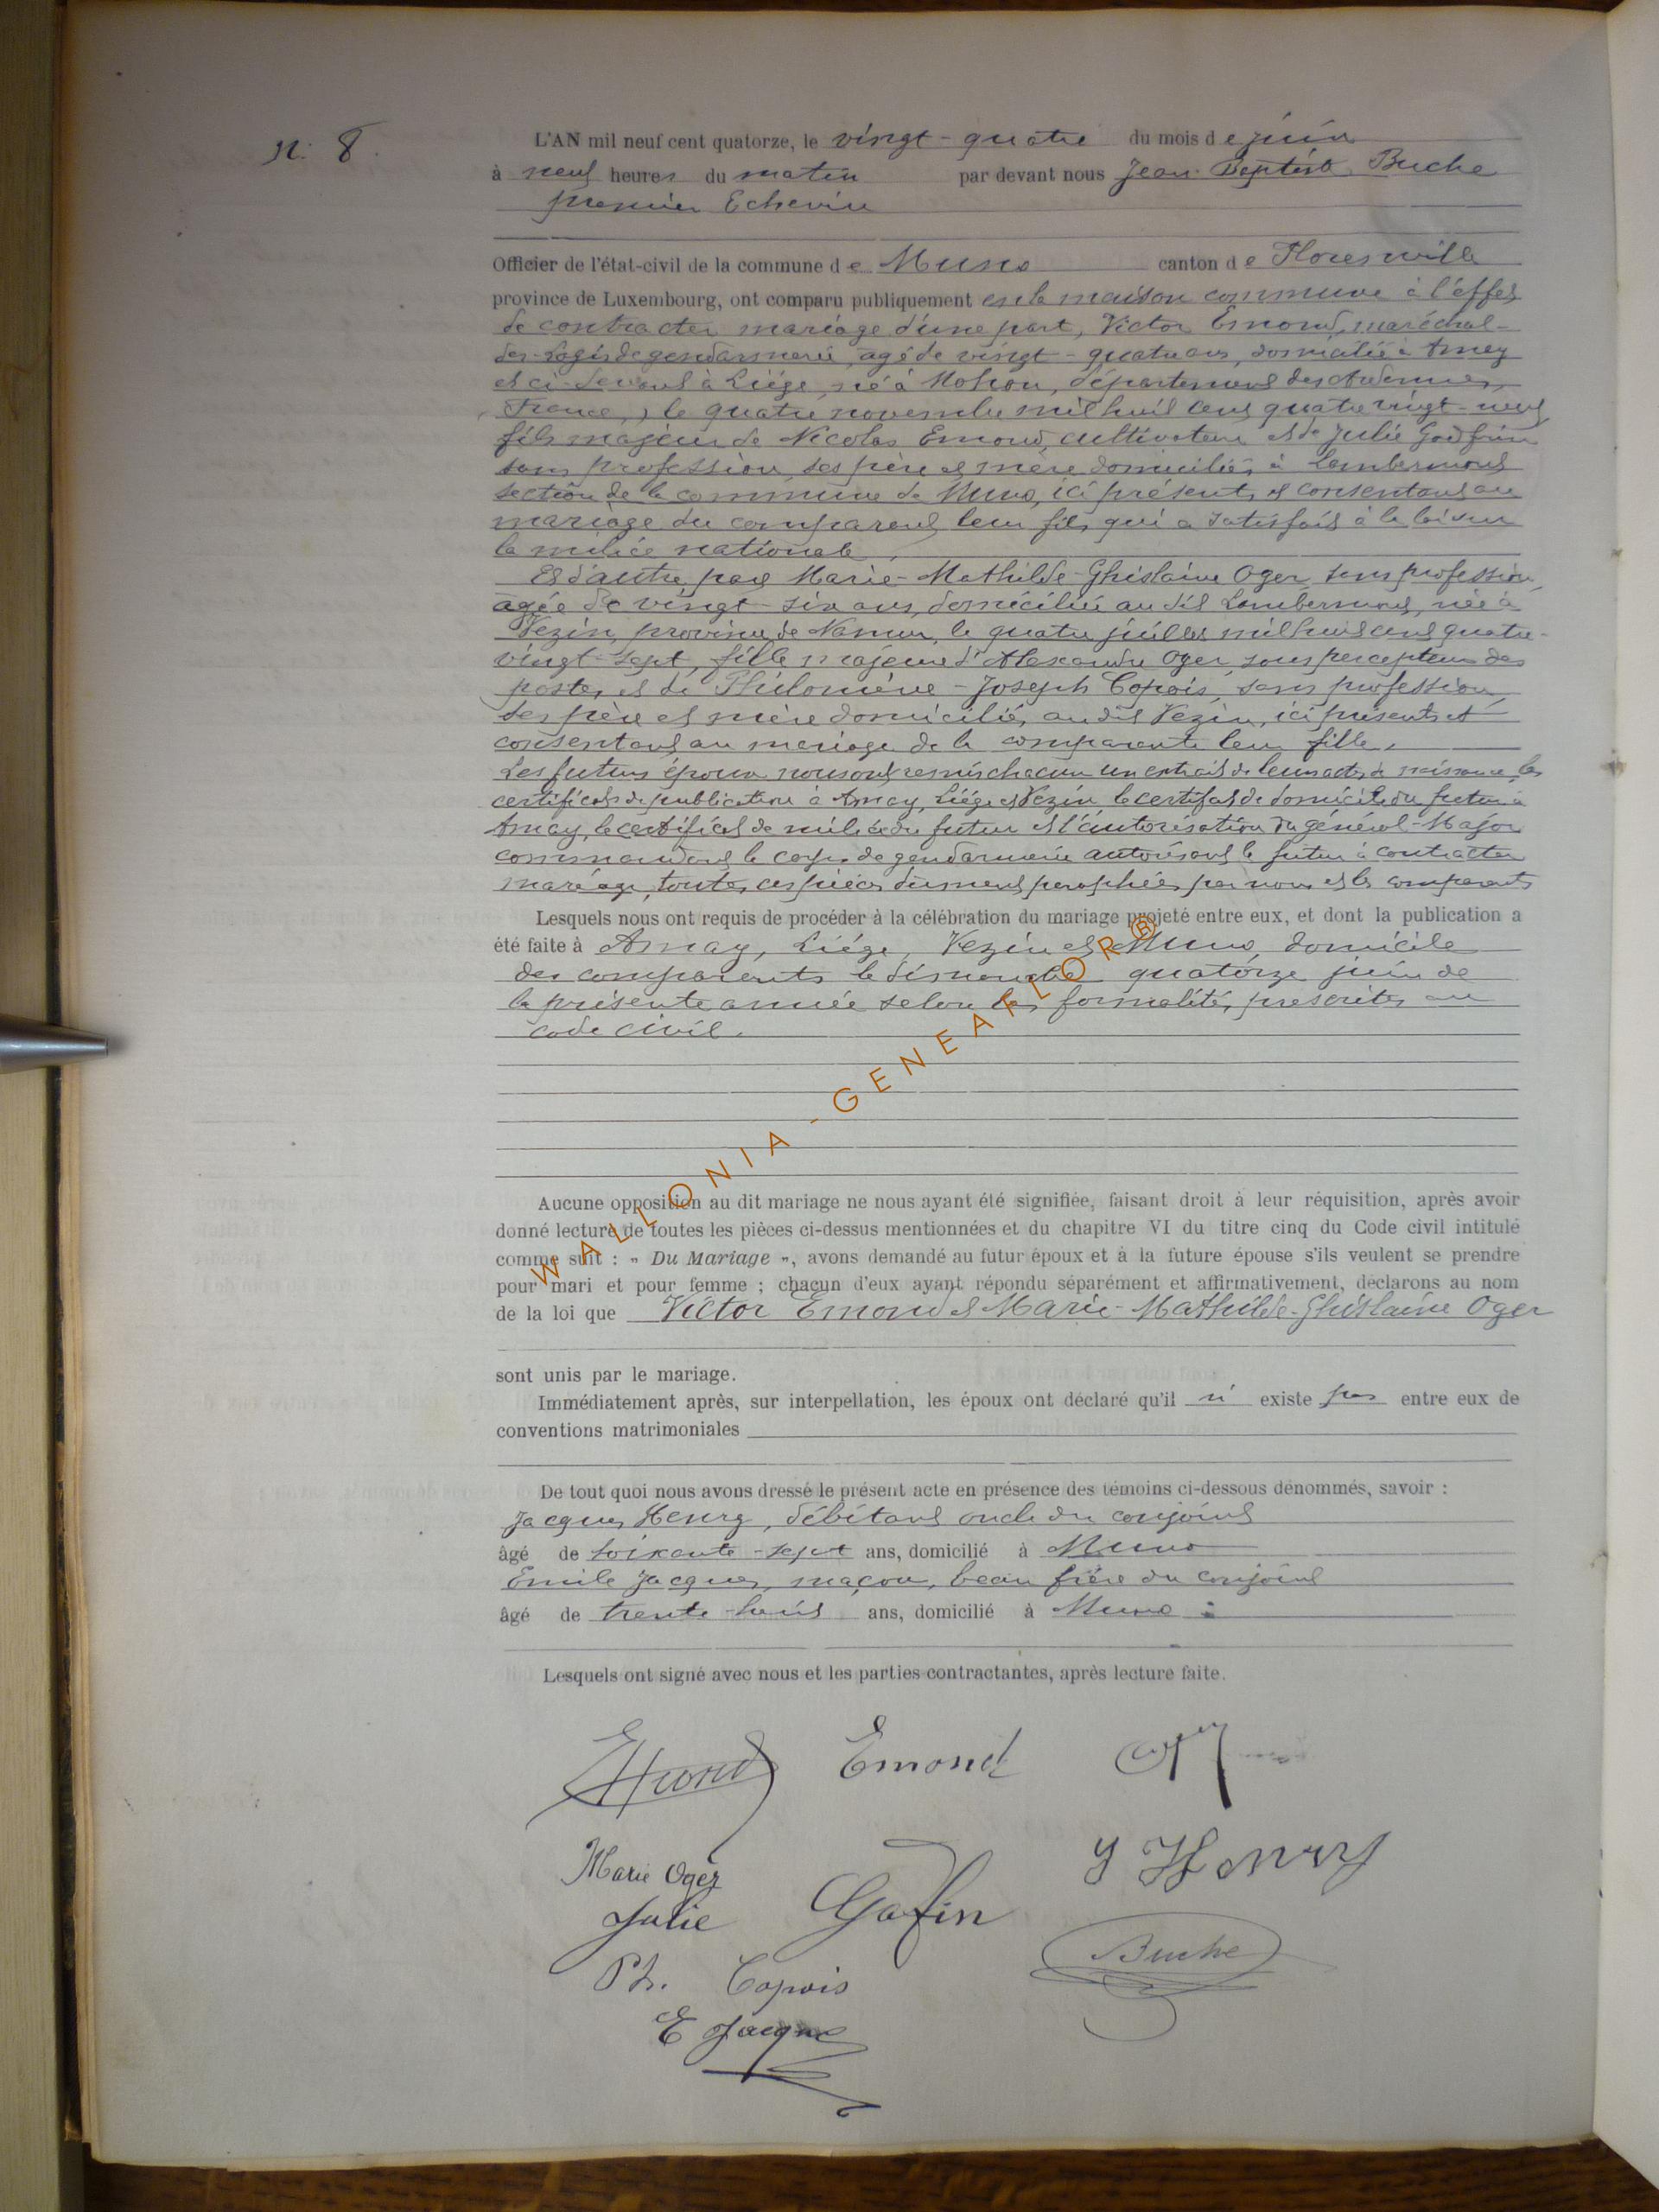 n° 8
L'AN mil neuf cent quatorze, le vingt-quatre du mois de juin
à neuf heures du matin par devant nous Jean Baptiste Buche
premier Echevin
Officier de l'état-civil de la commune de Muno canton de Florenville
province de Luxembourg, ont comparu publiquement en la maison commune à l'effet
de contracter mariage d'une part, Victor Emond, maréchal-
des-Logis de gendarmerie, âgé de vingt-quatre ans, domicilié à Amay
et ci-devant à Liége, né à Mohon, département des Ardennes,
(France,) le quatre novembre mil huit cent quatre vingt-neuf
fils majeur de Nicolas Emond, cultivateur et de Julie Godfrin
sans profession, ses père et mère domiciliés à Lambermont
section de la commune de Muno, ici présents et consentant au
mariage du comparant leur fils, qui a satisfait à la loi sur
la milice nationale,
Et d'autre part Marie-Mathilde-Ghislaine Oger, sans profession,
âgée de vingt-six ans, domiciliée au dit Lambermont, née à
Vezin, province de Namur, le quatre juillet mil huit cent quatre-
vingt-sept, fille majeure d'Alexandre Oger, sous percepteur des
postes et de Philomène-Joseph Copois, sans profession,
ses père et mère domiciliés au dit Vezin, ici présents et
consentant au mariage de la comparante leur fille.
Les futurs époux nous ont remis chacun un extrait de leurs actes de naissance, les
certificats de publication à Amay, Liége et Vezin, le certificat de domicile du futur à
Amay, le certificat de milice du futur et l'autorisation du général-Major
commandant le corps de gendarmerie autorisant le futur à contracter
mariage, toutes ces pièces dûment paraphées par nous et les comparants
Lesquels nous ont requis de procéder à la célébration du mariage projeté entre eux, et dont la publication a
été faite à Amay, Liége, Vezin et Muno, domicile
des comparants le dimanche quatorze juin de
la présente année selon les formalités prescrites au
code civil.
WALLONIA-GENEAFLOR®
Aucune opposition au dit mariage ne nous ayant été signifiée, faisant droit à leur réquisition, après avoir
donné lecture de toutes les pièces ci-dessus mentionnées et du chapitre VI du titre cinq du Code civil intitulé
comme suit : „ Du Mariage „, avons demandé au futur époux et à la future épouse s'ils veulent se prendre
pour mari et pour femme ; chacun d'eux ayant répondu séparément et affirmativement, déclarons au nom
de la loi que Victor Emond et Marie-Mathilde-Ghislaine Oger
sont unis par le mariage.
Immédiatement après, sur interpellation, les époux ont déclaré qu'il n' existe pas entre eux de
conventions matrimoniales
De tout quoi nous avons dressé le présent acte en présence des témoins ci-dessous dénommés, savoir :
Jacques Henry, débitant oncle du conjoint
âgé de soixante-sept ans, domicilié à Muno
Emile Jacques, maçon, beau frère du conjoint
âgé de trente-huit ans, domicilié à Muno
Lesquels ont signé avec nous et les parties contractantes, après lecture faite.
Emond Emond
Marie Oger J Henry
Julie Gofin
Buche
Ph. Copois
E Jacque